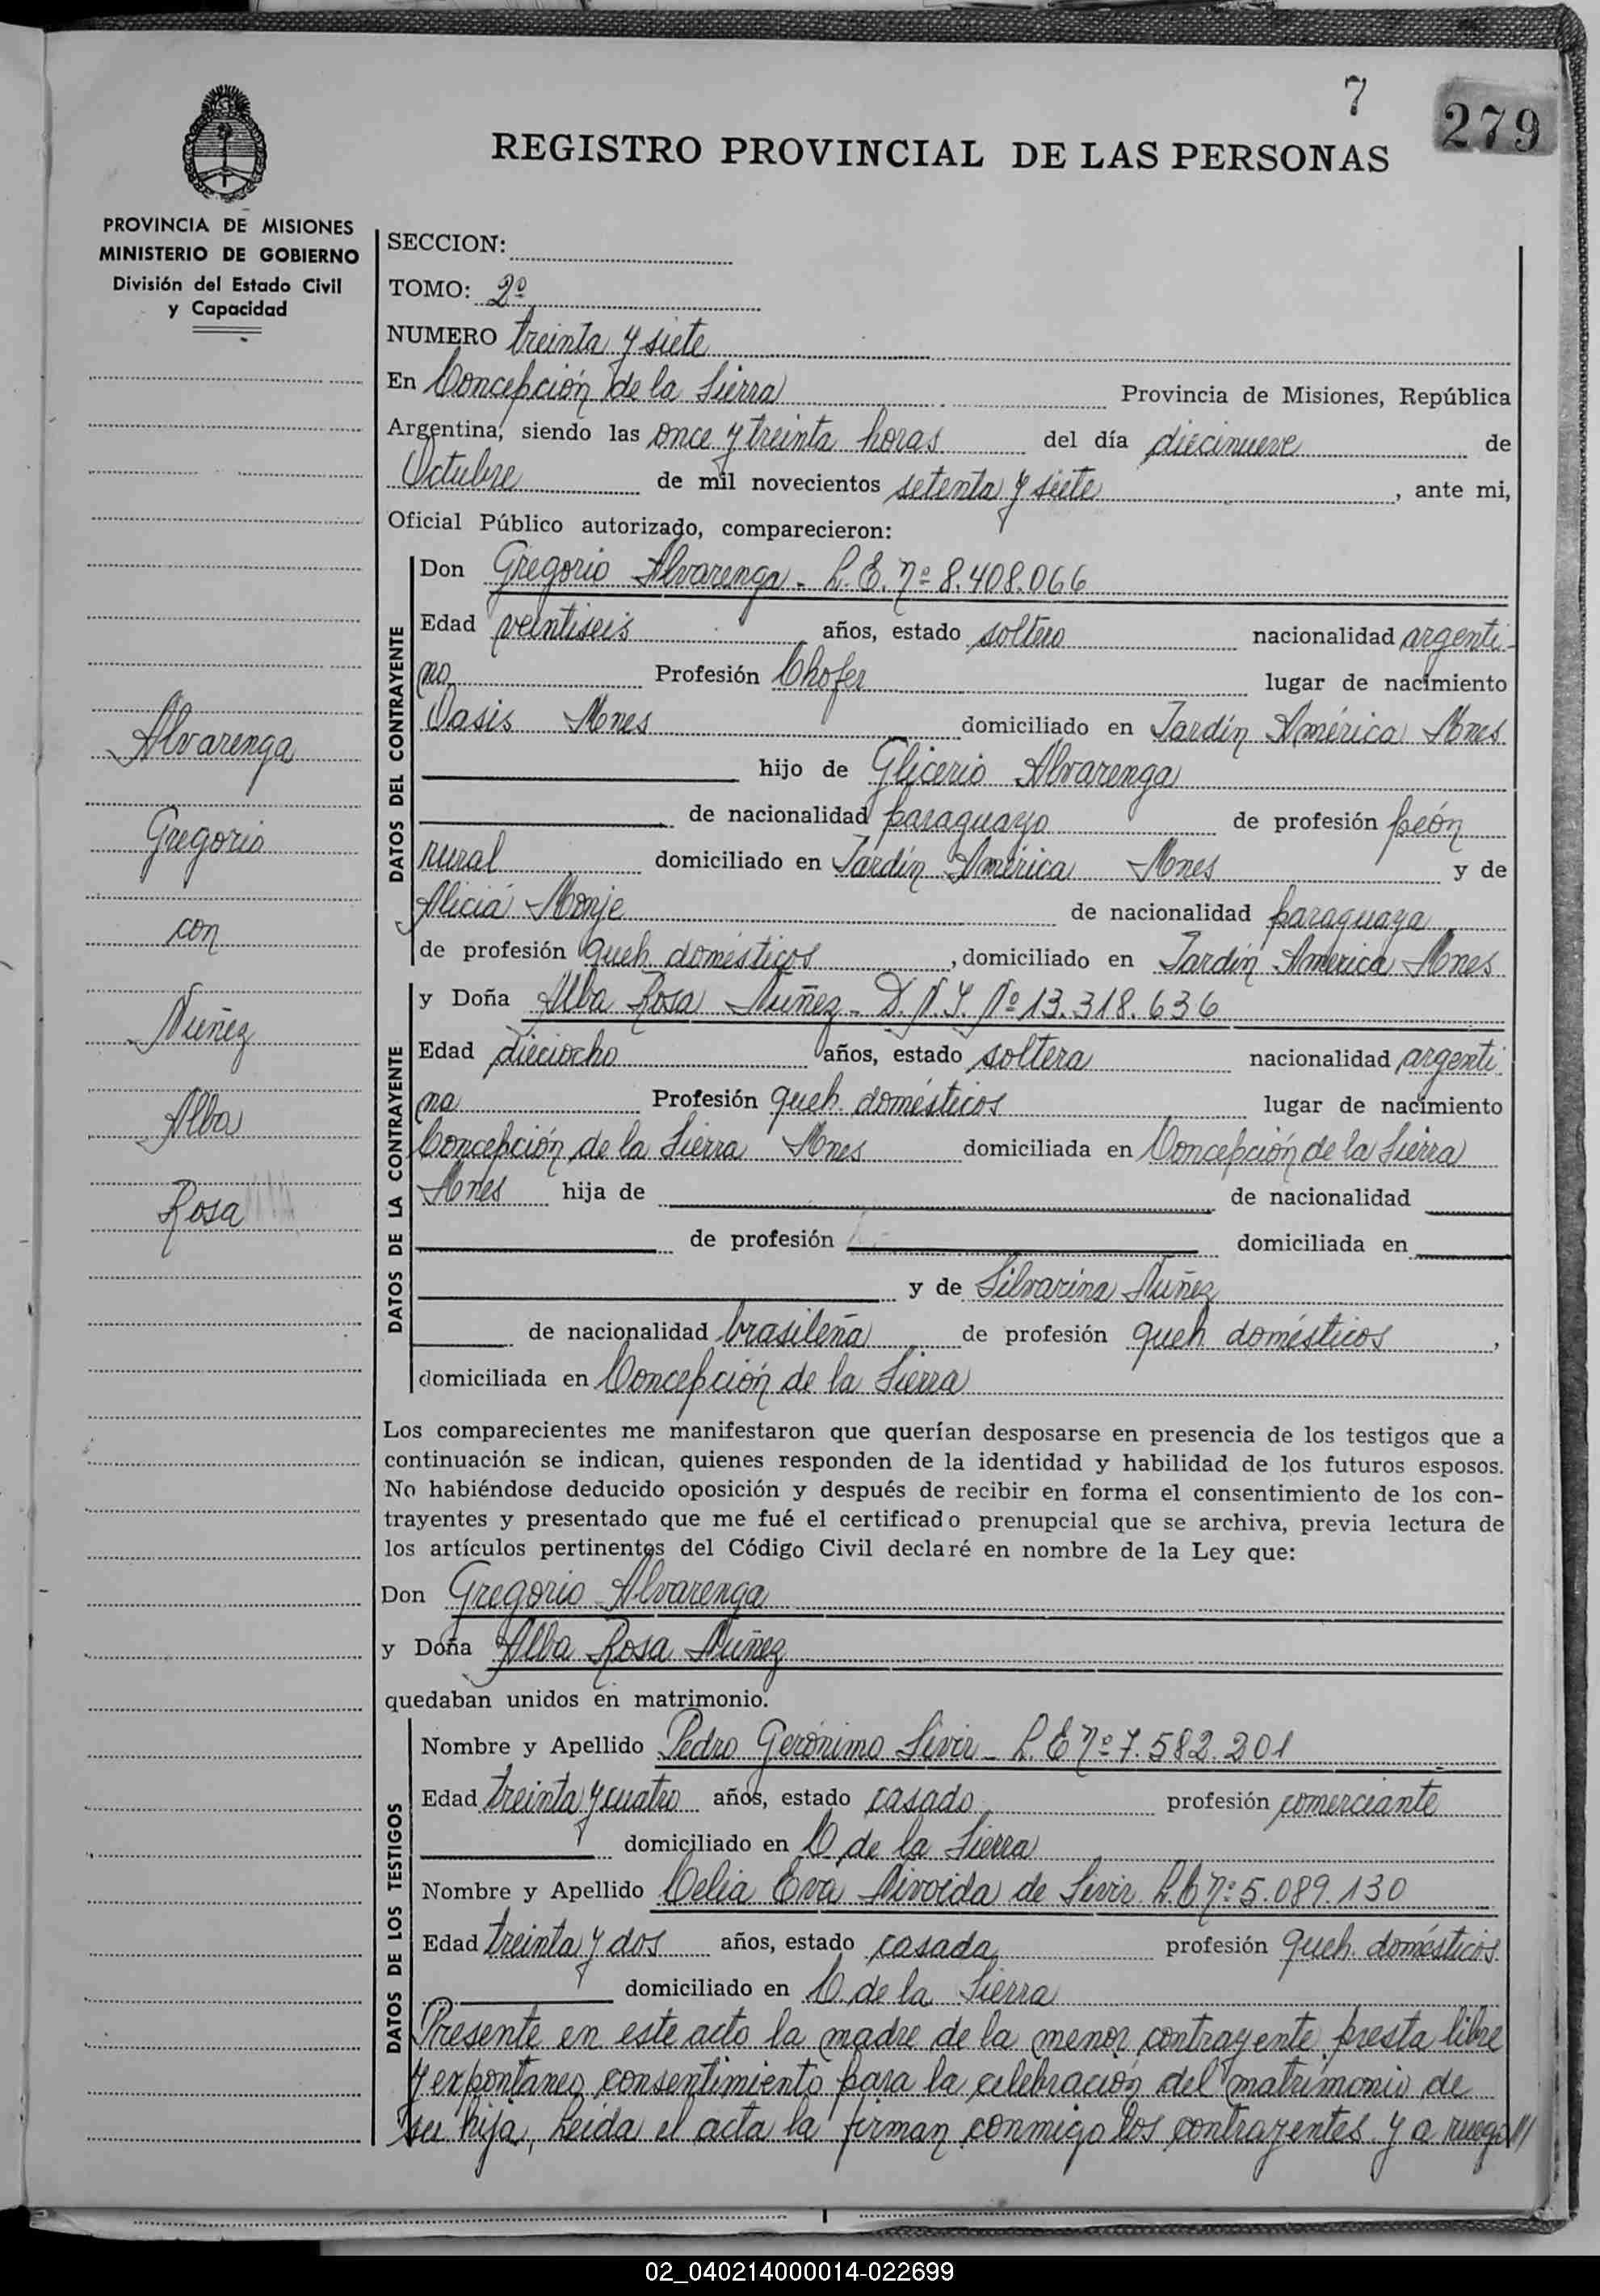 7
279
REGISTRO PROVINCIAL DE LAS PERSONAS
PROVINCIA DE MISIONES
MINISTERIO DE GOBIERNO
División del Estado Civil
y Capacidad
Alvarenga
Gregorio
con
Nuñez
Alba
Rosa
SECCION:
TOMO: 2º
NUMERO treinta y siete
En Concepción de la Sierra Provincia de Misiones, República
Argentina, siendo las once y treinta horas del día diecinueve de
Octubre de mil novecientos setenta y siete, ante mi,
Oficial Público autorizado, comparecieron:
DATOS DEL CONTRAYENTE
Don Gregorio Alvarenga - L.E. Nº 8.408.066
Edad veintiseis años, estado soltero nacionalidad argenti-
no Profesión Chofer lugar de nacimiento
Oasis Mnes domiciliado en Jardín América Mnes
hijo de Glicerio Alvarenga
de nacionalidad paraguayo de profesión peón
rural domiciliado en Jardín América Mnes y de
Alicia Monje de nacionalidad paraguaya
de profesión queh. domésticos, domiciliado en Jardín América Mnes
DATOS DE LA CONTRAYENTE
y Doña Alba Rosa Nuñez - D.N.I. Nº 13.318.636
Edad dieciocho años, estado soltera nacionalidad argenti
na Profesión queh. domésticos lugar de nacimiento
Concepción de la Sierra Mnes domiciliada en Concepción de la Sierra
Mnes hija de de nacionalidad
de profesión domiciliada en
y de Silvarina Nuñez
de nacionalidad brasileña de profesión queh domésticos,
domiciliada en Concepción de la Sierra
Los comparecientes me manifestaron que querían desposarse en presencia de los testigos que a
continuación se indican, quienes responden de la identidad y habilidad de los futuros esposos.
No habiéndose deducido oposición y después de recibir en forma el consentimiento de los con-
trayentes y presentado que me fué el certificado prenupcial que se archiva, previa lectura de
los artículos pertinentes del Código Civil declaré en nombre de la Ley que:
Don Gregorio Alvarenga
y Doña Alba Rosa Nuñez
quedaban unidos en matrimonio.
DATOS DE LOS TESTIGOS
Nombre y Apellido Pedro Gerónimo Sivir - L.E Nº 7.582.201
Edad treinta y cuatro años, estado casado profesión comerciante
domiciliado en C. de la Sierra
Nombre y Apellido Celia Eva de Sivir L.C Nº 5.089.130
Edad treinta y dos años, estado casada profesión queh. domésticos
domiciliado en C. de la Sierra
Presente en este acto la madre de la menor contrayente presta libre
y expontaneo consentimiento para la celebración del matrimonio de
su hija, Leida el acta la firman conmigo los contrayentes y a ruego///
02_040214000014-022699